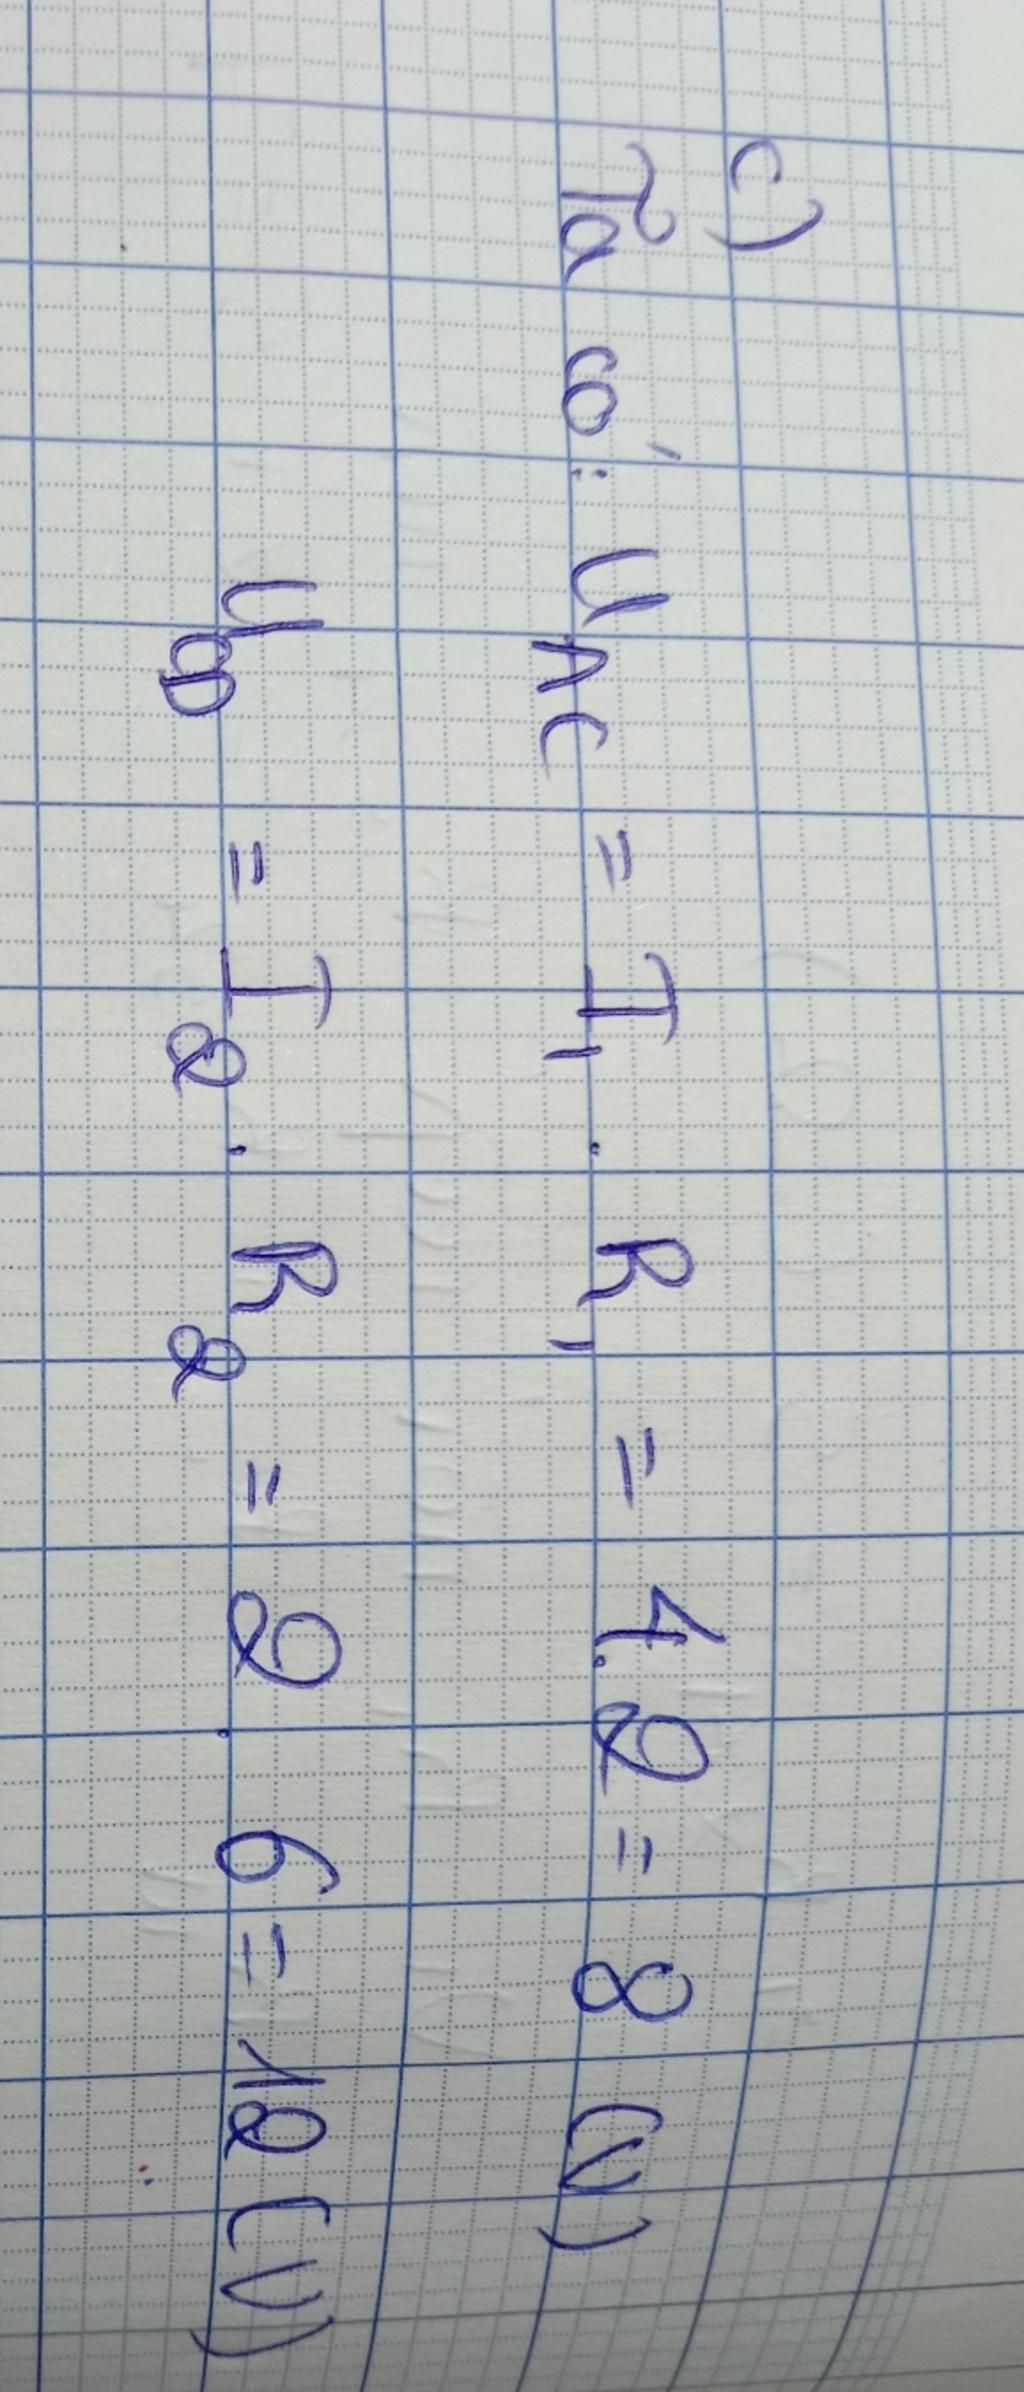 c)
Ta có: U_AC = I_1 . R_1 = 4.2 = 8 (V)
U_B = I_2 . R_2 = 2 . 6 = 12 (V)